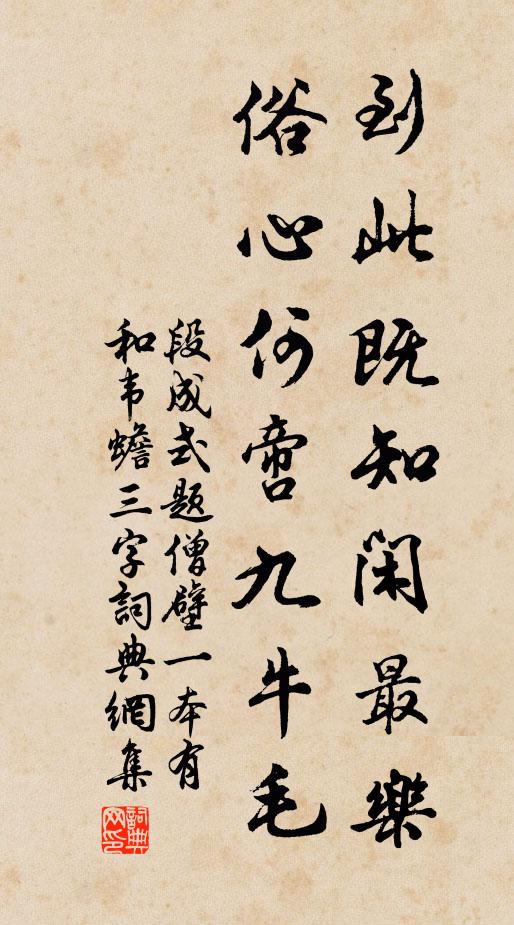 到此既知闲最樂
俗心何啻九牛毛
段成式题僧壁一本有
和韦蟾三字詞典網集
詞典网印